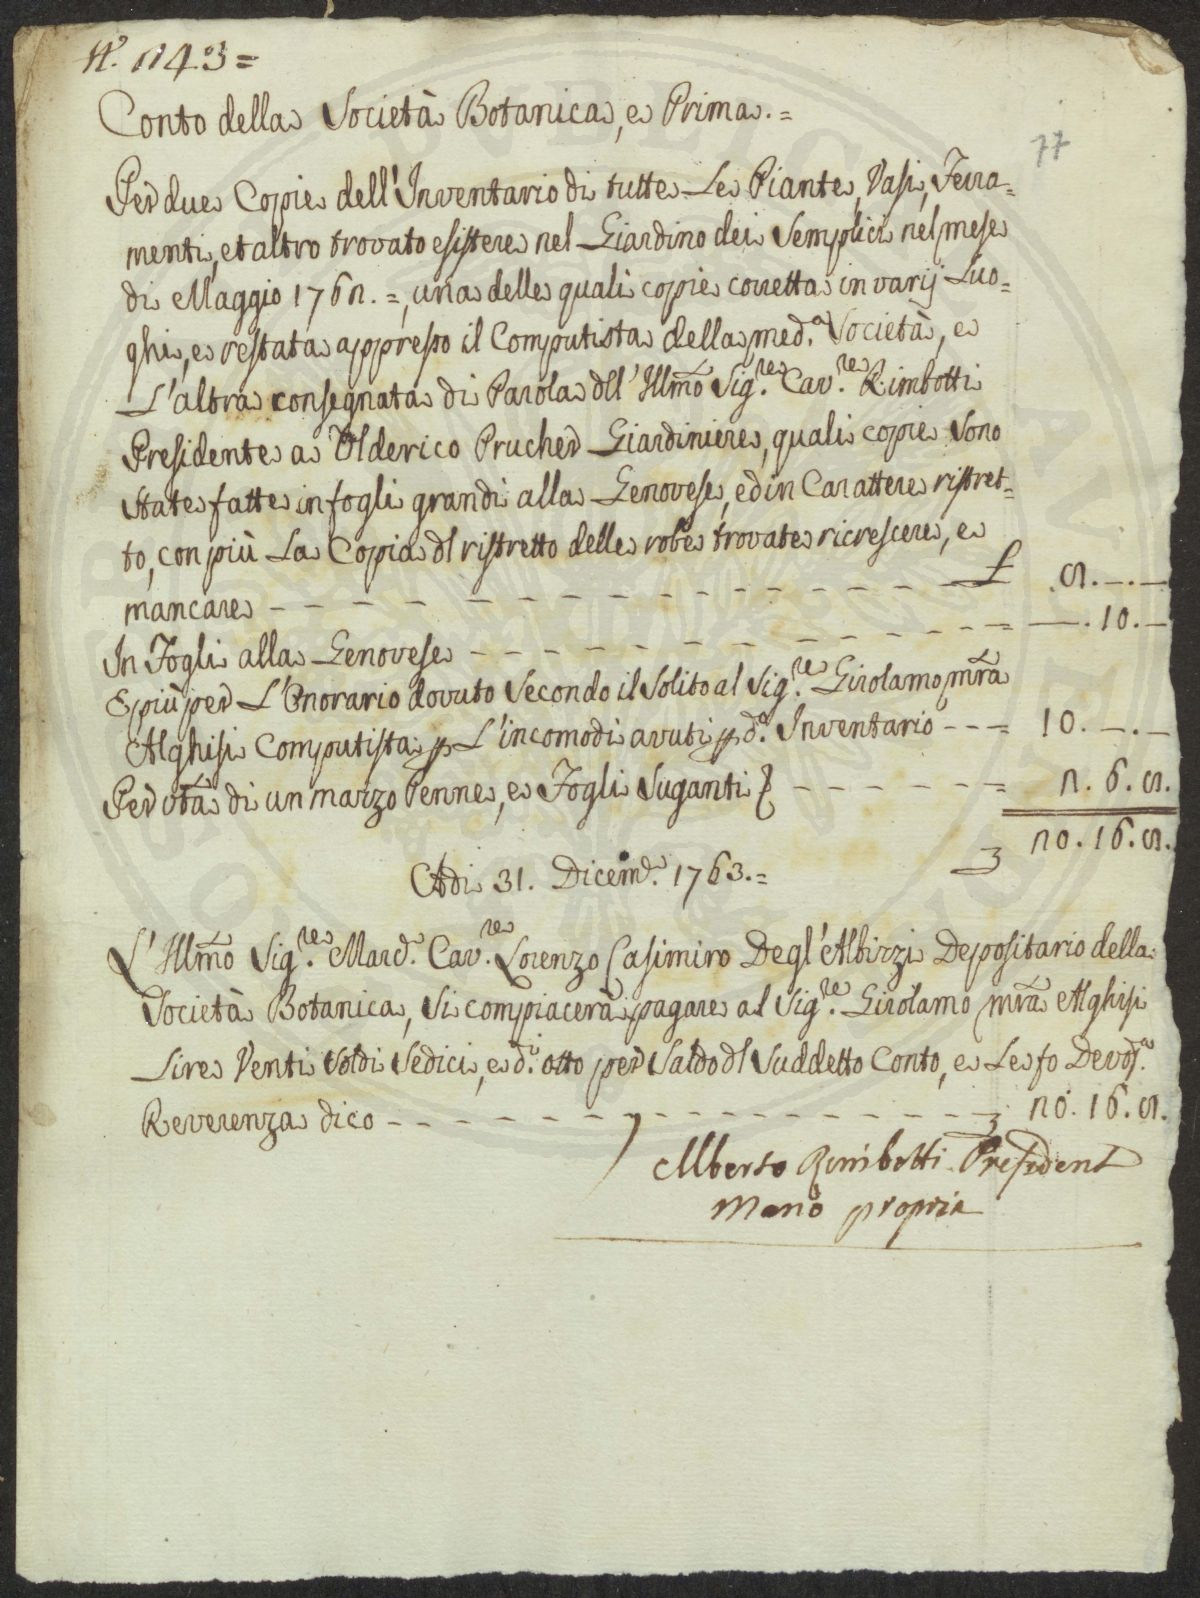 N.° 243 =
Conto della Società Botanica, e Prima. =
77
Per due Copie dell'Inventario di tutte Le Piante, Vasi, Ferra=
menti, et altro trovato esistere nel Giardino dei Semplici nel mese
di Maggio 1762. =, una delle quali copie corretta in varij Luo=
ghi, e restata appresso il Computista della med.ª Società, e
L'altra consegnata di Parola dll' Illmo Sig.re Cav.re Rimbotti
Presidente a Olderico Prucher Giardiniere, quali copie Sono
State fatte in fogli grandi alla Genovese, ed in Carattere ristret=
to, con più La Copia dl ristretto delle robe trovate ricrescere, e
mancare - - - - - - £ 8. —. —
In Fogli alla Genovese - - - - - - = —. 10. —
E più per L'Onorario dovuto Secondo il Solito al Sig.re Girolamo Mra
Alghisi Computista p L'incomodi avuti p d.º Inventario - - - = 10. —. —
Per val.ta di un marzo Penne, e Fogli Suganti - - - - - - = 2. 6. 8.
20. 16. 8.
Adi 31. Dicemb. 1763. =
L'Illmo Sig.re March. Cav.re Lorenzo Casimiro Degl'Albizzi Depositario della
Società Botanica, Si compiacerà pagare al Sig.re Girolamo Mra Alghisi
Lire Venti Soldi Sedici, e d.i otto per Saldo dl Suddetto Conto, e Le fo Devos.ª
Reverenza dico - - - - - - 20. 16. 8.
Alberto Rimbotti President
Mano propria